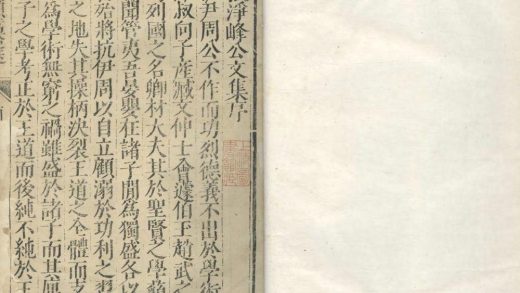 淨峰公文集序
尹周公不作而功烈德義不出於學術
叔向子產臧文仲士會蘧伯玉趙武之
列國之名卿材大夫其於聖賢之學
聞管夷吾晏嬰在諸子間為獨盛各以
殆將抗伊周以自立顧溺於功利之習
之地失其操柄決裂王道之全體而支
為學術無窮之禍雖盛於諸子而其
子之學考止於王道而後純不純於王